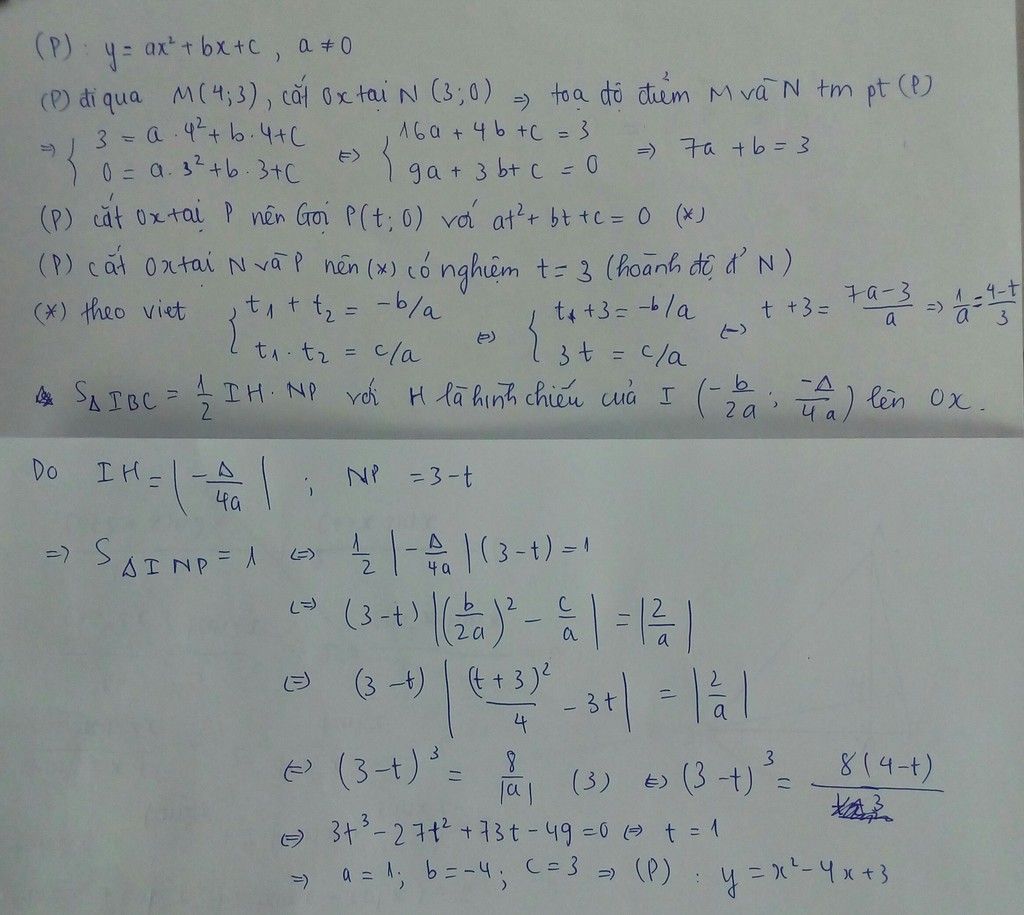 (P): y = ax² + bx + c , a ≠ 0
(P) đi qua M(4;3), cắt Ox tại N(3;0) => toạ độ điểm M và N tm pt (P)
=> { 3 = a.4² + b.4 + c <=> { 16a + 4b + c = 3 => 7a + b = 3
0 = a.3² + b.3 + c 9a + 3b + c = 0
(P) cắt Ox tại P nên Gọi P(t;0) với at² + bt + c = 0 (*)
(P) cắt Ox tại N và P nên (*) có nghiệm t = 3 (hoành độ đ' N)
(*) theo viet { t₁ + t₂ = -b/a <=> { t₁ + 3 = -b/a <=> t + 3 = (7a-3)/a => 1/a = (4-t)/3
t₁.t₂ = c/a 3t = c/a
S△IBC = 1/2 IH.NP với H là hình chiếu của I (-b/2a ; -Δ/4a) lên Ox.
Do IH = |-Δ/4a| ; NP = 3-t
=> S△INP = 1 <=> 1/2 |-Δ/4a| (3-t) = 1
<=> (3-t) |(b/2a)² - c/a| = |2/a|
<=> (3-t) |(t+3)²/4 - 3t| = |2/a|
<=> (3-t)³ = 8/|a| (3) <=> (3-t)³ = 8(4-t)/3
<=> 3t³ - 27t² + 73t - 49 = 0 <=> t = 1
=> a = 1; b = -4; c = 3 => (P) : y = x² - 4x + 3